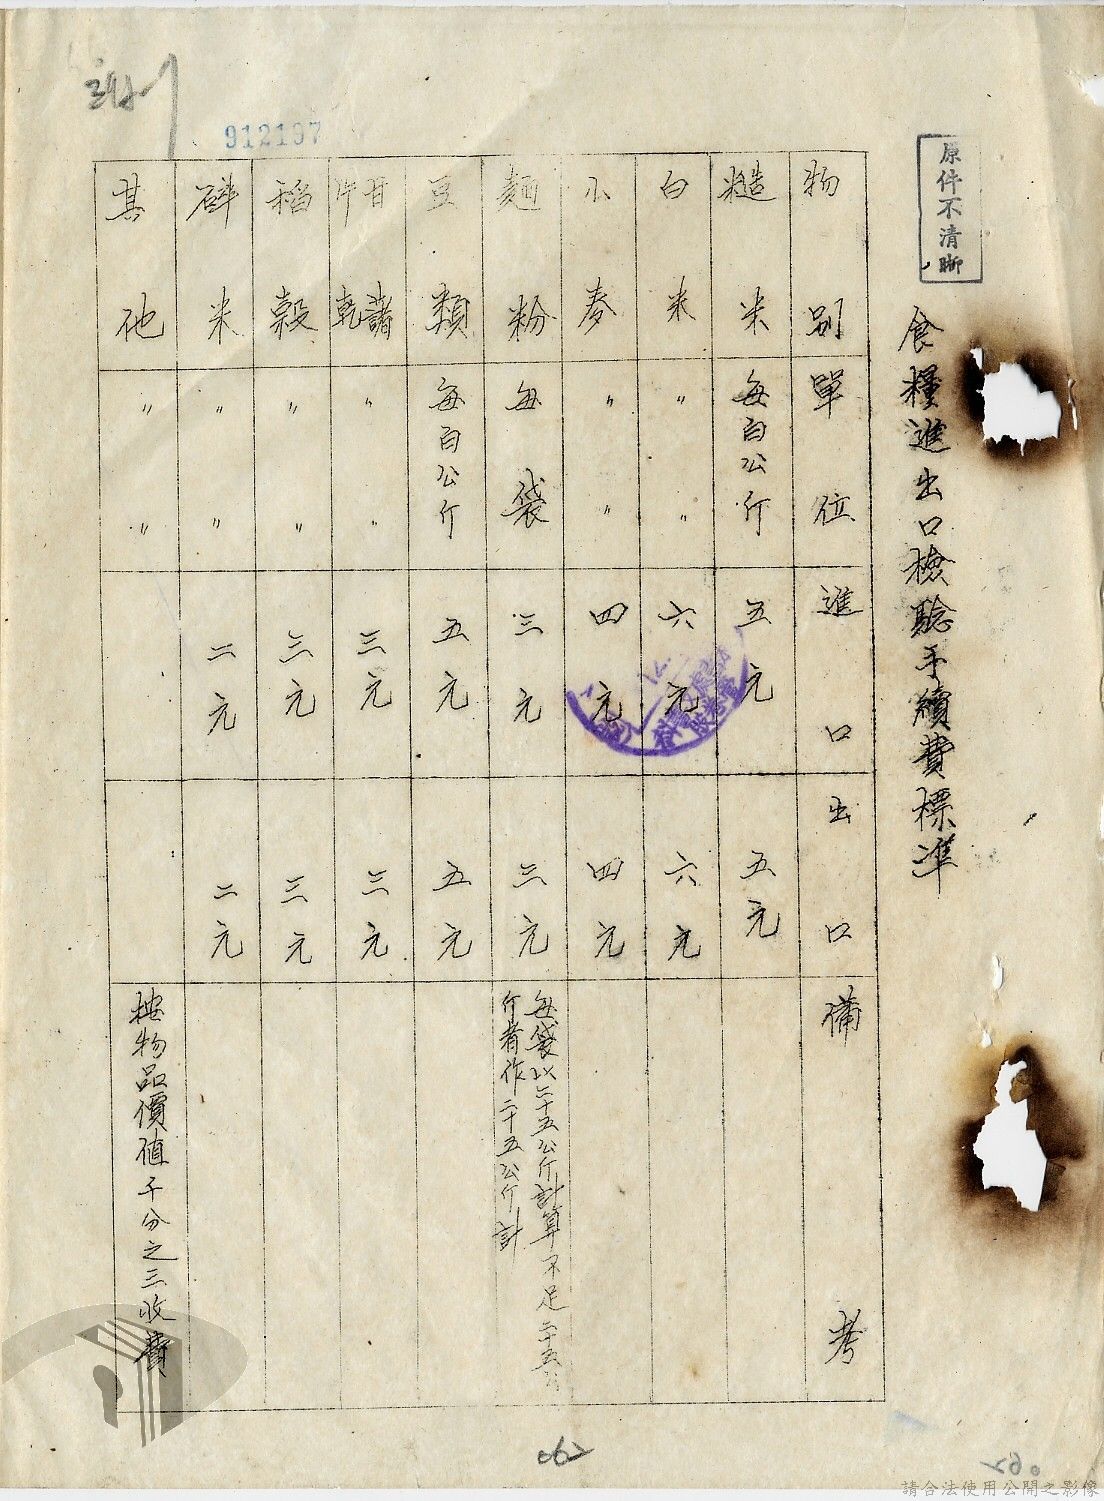 原件不清晰
食糧進出口檢驗手續費標準
物別 單位 進口 出口 備考
糙米 每百公斤 五元 五元
白米 〃 〃 六元 六元
小麥 〃 〃 四元 四元
麵粉 每袋 三元 三元 每袋以二十五公斤計算不足二十五公斤者作二十五公斤計
豆類 每百公斤 五元 五元
甘藷乾片 〃 〃 三元 三元
稻穀 〃 〃 三元 三元
碎米 〃 〃 二元 二元
其他 〃 〃 按物品價值千分之三收費
912197
062
請合法使用公開之影像